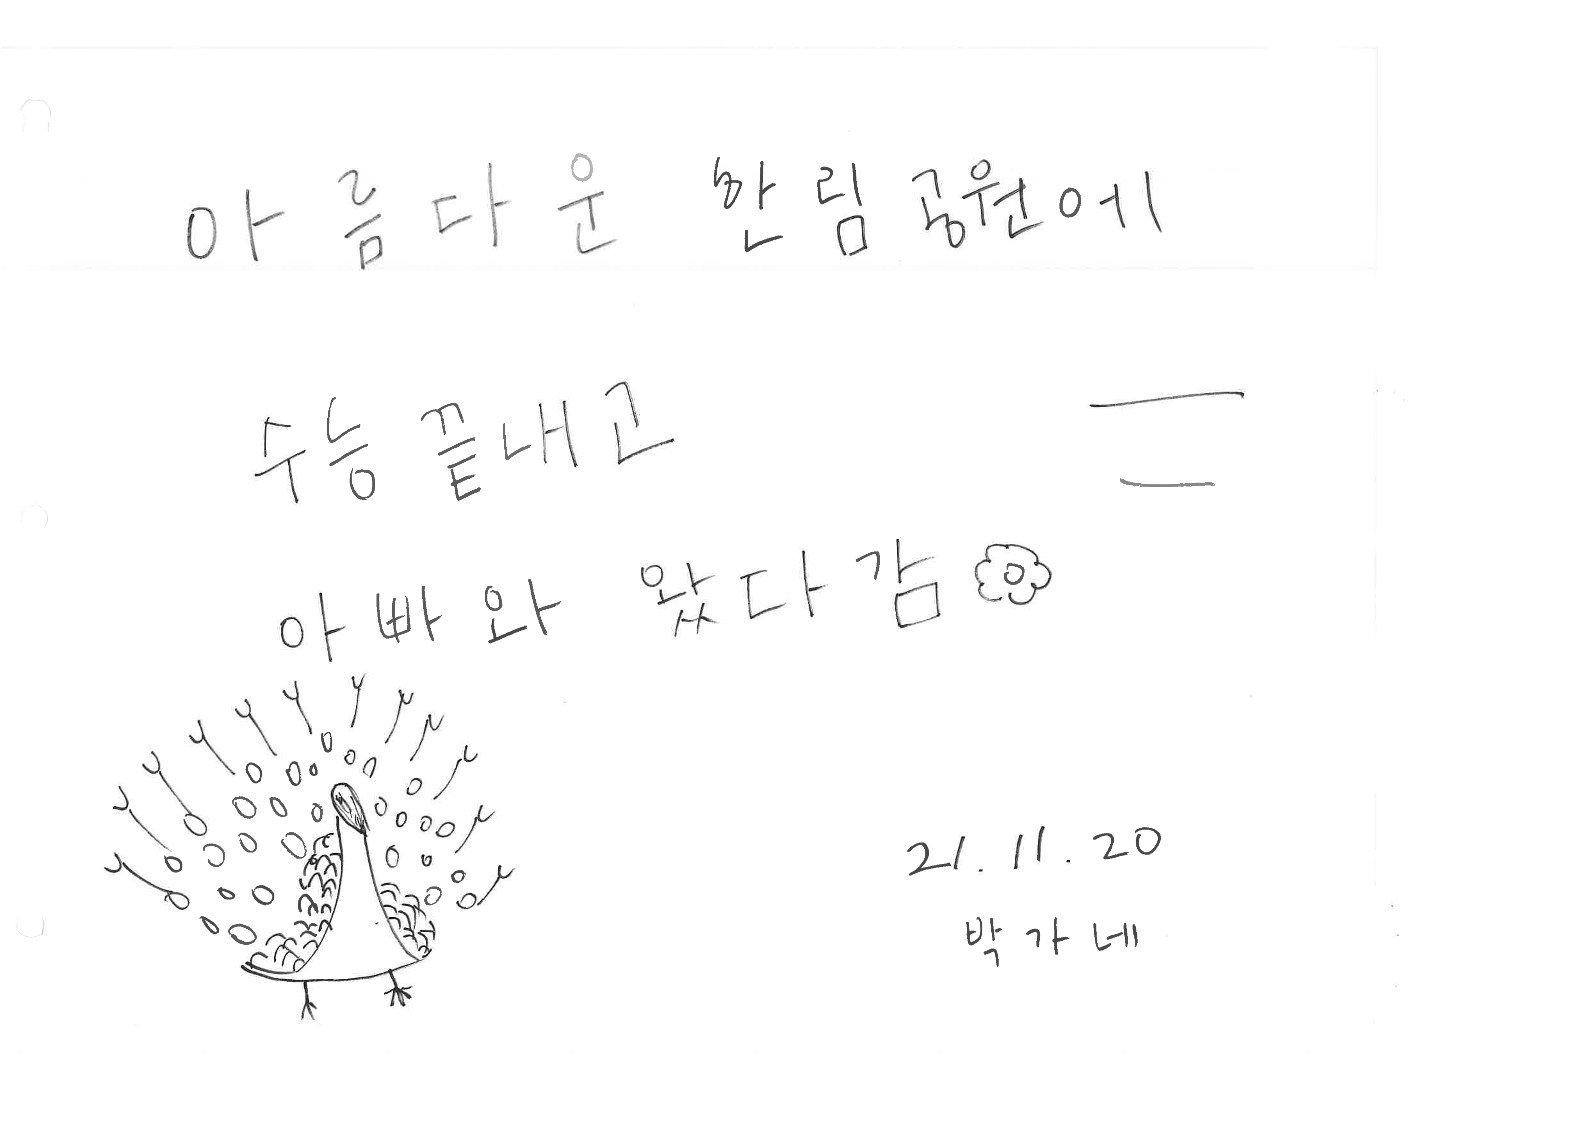 아름다운 한림공원에
수능 끝내고
아빠와 왔다감
21.11.20
박가네